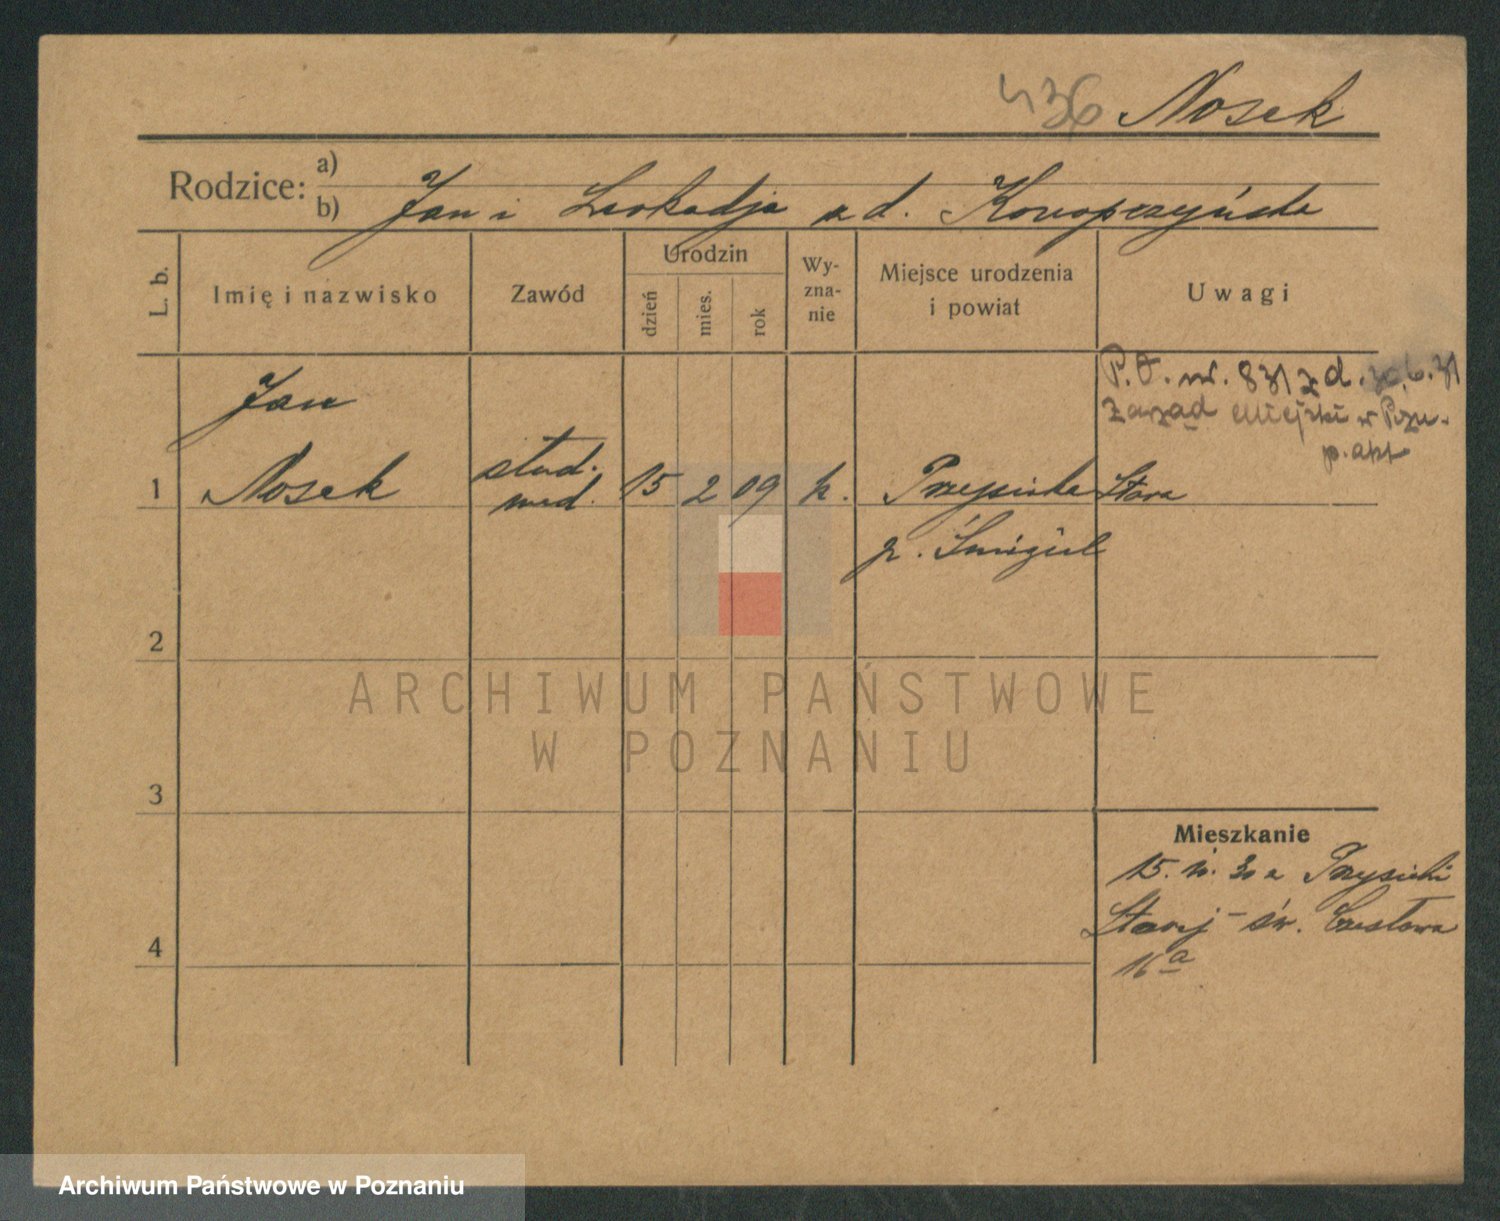 436 Nosek
Rodzice:
a)
b) Jan i Leokadja z d. Konopczyńska
L. b.
Imię i nazwisko
Zawód
Urodzin
dzień
mies.
rok
Wy-
zna-
nie
Miejsce urodzenia
i powiat
Uwagi
P. O. nr. 831 z d. 30.6.31
Zarząd Miejski w Pozn-
Jan
1 Nosek stud. med. 15 2 09 k. Przysieka Stara
p. Śmigiel
2
3
4
Mieszkanie
15. 10. 30 z Przysieki
Starej - św. Czesława
16a
ARCHIWUM PAŃSTWOWE
W POZNANIU
Archiwum Państwowe w Poznaniu